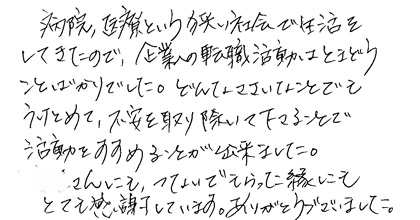 病院、医療という狭い社会で生活を
してきたので、企業への転職活動はとまどう
ことばかりでした。どんなささいなことでも
うけとめて、不安を取り除いて下さることで
活動をすすめることが出来ました。
さんにも、つないでもらった縁にも
とても感謝しています。ありがとうございました。